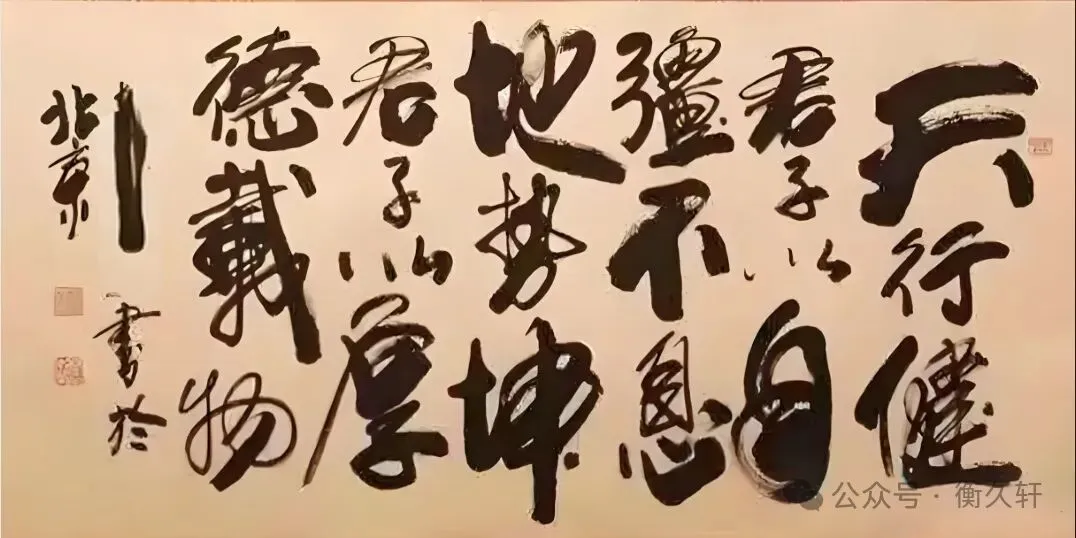 天行健
君子以自
彊不息
地势坤
君子以厚
德载物
一书於
北京
公众号·衡久轩